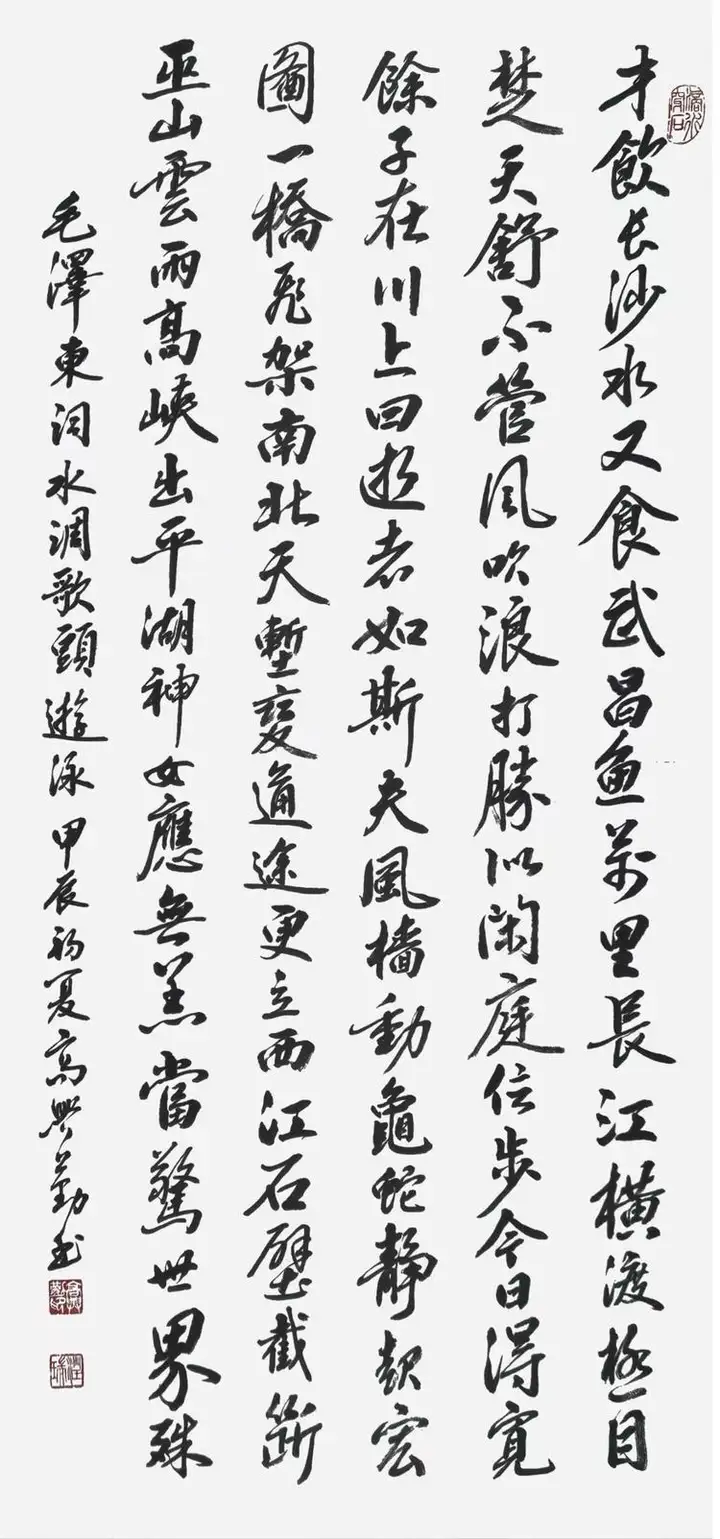 才飲长沙水又食武昌魚萬里長江橫渡極目
楚天舒不管風吹浪打勝似閑庭信步今日得寬
餘子在川上曰逝者如斯夫風檣動龜蛇靜起宏
圖一橋飛架南北天塹變通途更立西江石壁截斷
巫山雲雨高峽出平湖神女應無恙當驚世界殊
毛澤東詞水調歌頭遊泳甲辰初夏高勤書